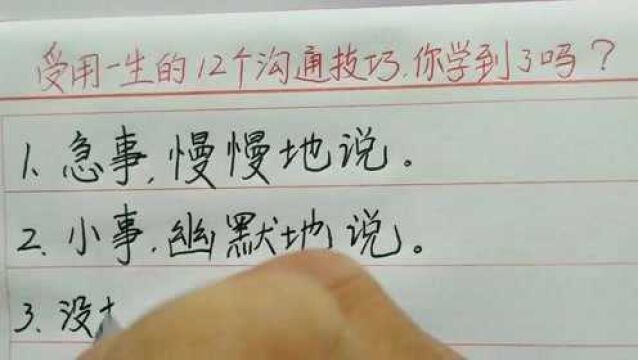 受用一生的12个沟通技巧.你学到了吗？
1. 急事,慢慢地说。
2. 小事.幽默地说。
3. 没